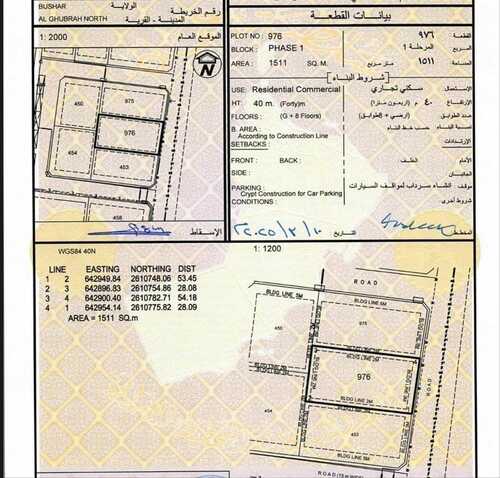 BUSHAR
الولاية
AL GHUBRAH NORTH
المدينة - القرية
رقم الخريطة
1: 2000
الموقع العام
N
975
450
976
454
453
الإسقاط
بيانات القطعة
PLOT NO : 976
٩٧٦
BLOCK : PHASE 1
المرحلة 1
المربع
AREA : 1511 SQ. M.
متر مربع
١٥١١
المساحة
شروط البناء
USE: Residential Commercial
سكني تجاري
الاستعمال
HT: 40 m. (Forty)m
٤٠ م (أربعون مترا)
الارتفاع
FLOORS : (G + 8 Floors)
(أرضي + 8طوابق)
عدد الطوابق
B. AREA :
According to Construction Line
حسب خط البناء
SETBACKS:
الارتدادات
FRONT : BACK :
الخلف
SIDE :
PARKING :
Crypt Construction for Car Parking
انشاء سرداب لمواقف السيارات
CONDITIONS :
شروط أخرى
WGS84 40N
LINE EASTING NORTHING DIST
1 2 642949.84 2610748.06 53.45
2 3 642896.83 2610754.86 28.08
3 4 642900.40 2610782.71 54.18
4 1 642954.14 2610775.82 28.09
AREA = 1511 SQ.m
1: 1200
ROAD
BLDG LINE 5M
450
975
BLDG LINE 3M
976
BLDG LINE 3M
454
453
BLDG LINE 5M
ROAD